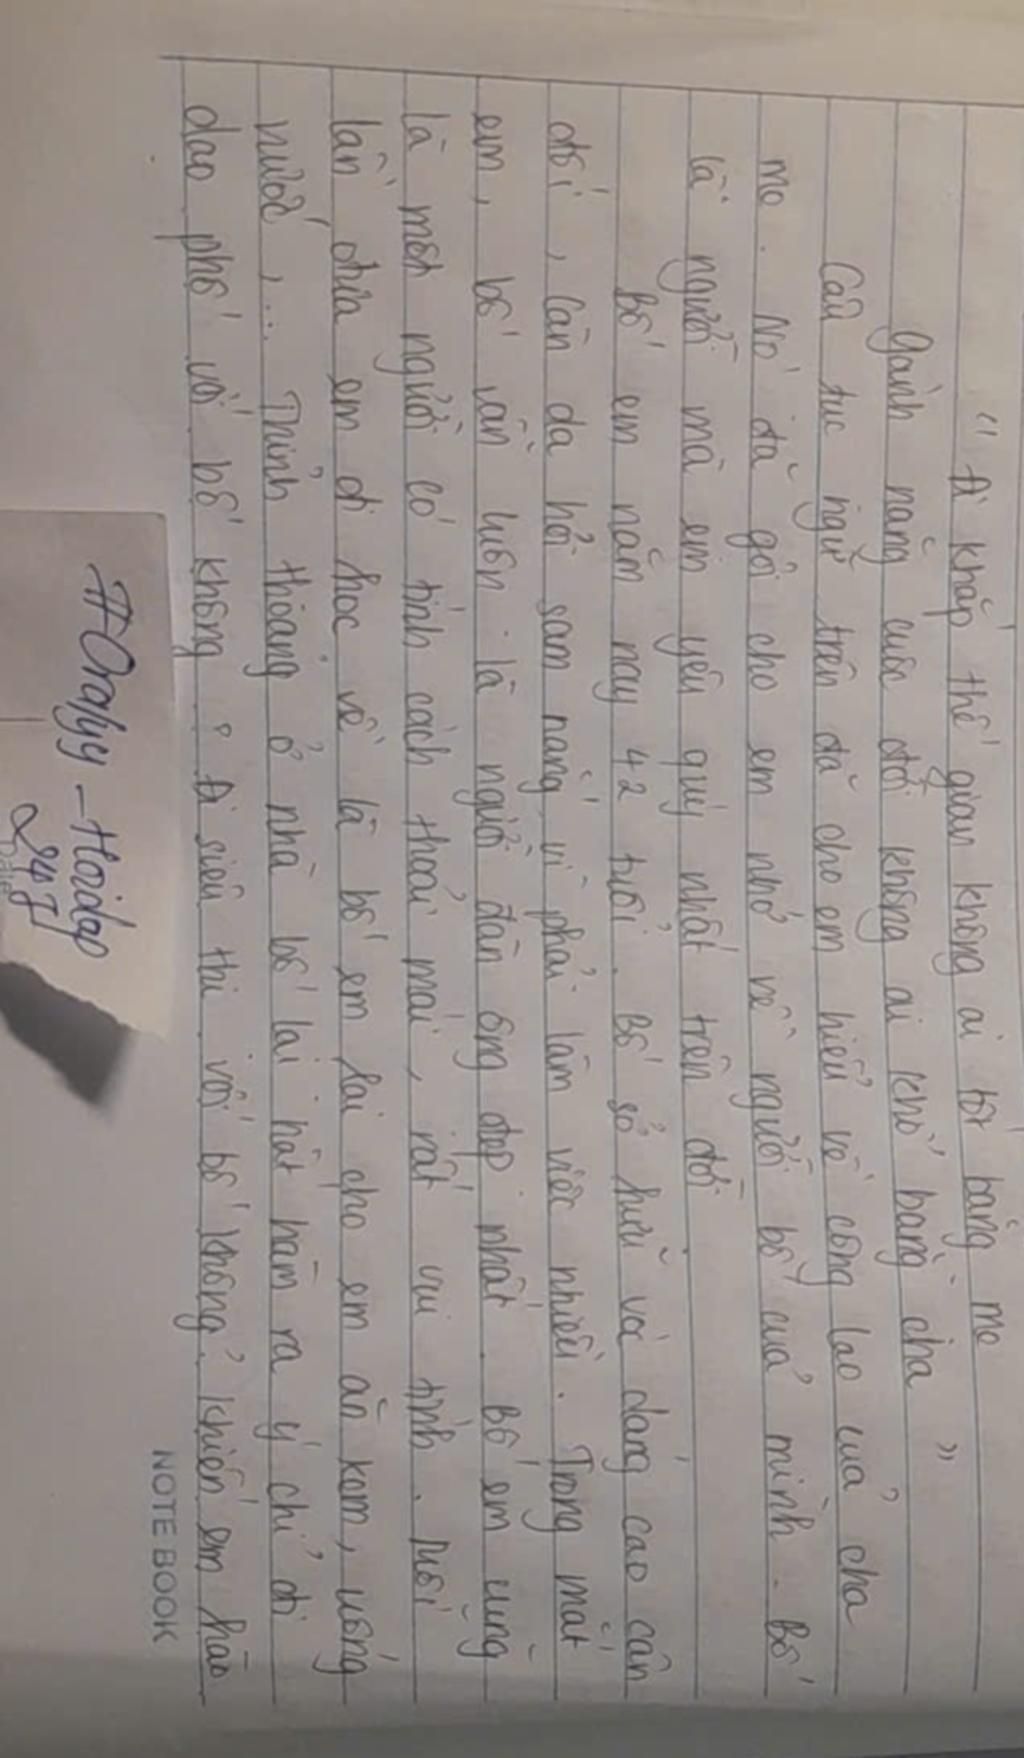 " Đi khắp thế gian không ai tốt bằng mẹ
Gánh nặng cuộc đời không ai khổ bằng cha "
Câu tục ngữ trên đã cho em hiểu về công lao của cha
mẹ. Nó đã gợi cho em nhớ về người bố của mình. Bố
là người mà em yêu quý nhất trên đời.
Bố em năm nay 42 tuổi. Bố sở hữu vóc dáng cao cân
đối, làn da hơi sạm nắng vì phải làm việc nhiều. Trong mắt
em, bố vẫn luôn là người đàn ông đẹp nhất. Bố em cũng
là một người có tính cách thoải mái, rất vui tính. Mỗi
lần đưa em đi học về là bố em lại cho em ăn kem, uống
nước,... Thỉnh thoảng ở nhà bố lại hất hàm ra ý chỉ đi
dạo phố với bố không, đi siêu thị với bố không, khiến em hào
NOTE BOOK
#Oahyy - Hoidap
247